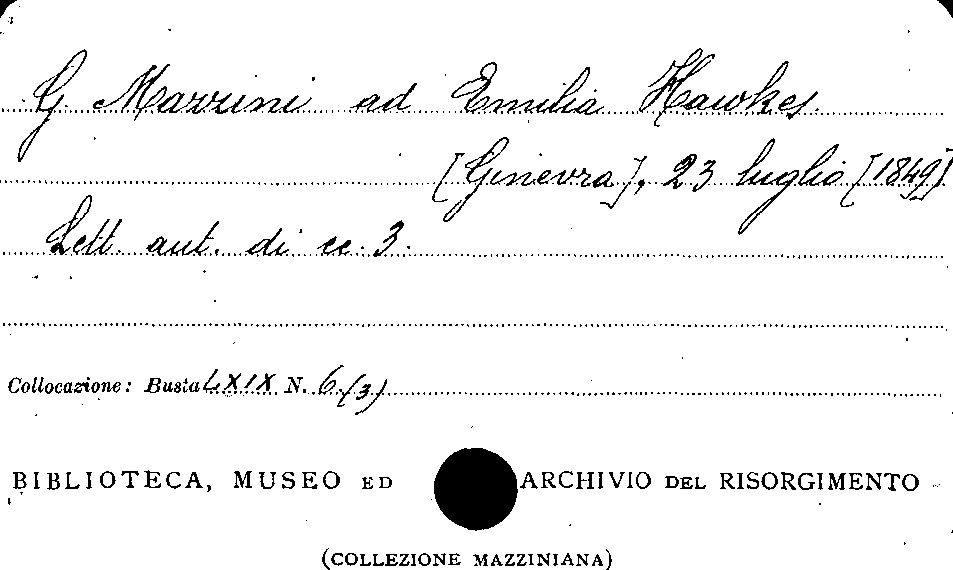 G. Mazzini ad Emilia Hawkes.
[Ginevra], 23 luglio [1849]
Lett. aut. di cc. 3.
Collocazione: Busta LXIX N. 6.(3)
BIBLIOTECA, MUSEO ED ARCHIVIO DEL RISORGIMENTO
(COLLEZIONE MAZZINIANA)